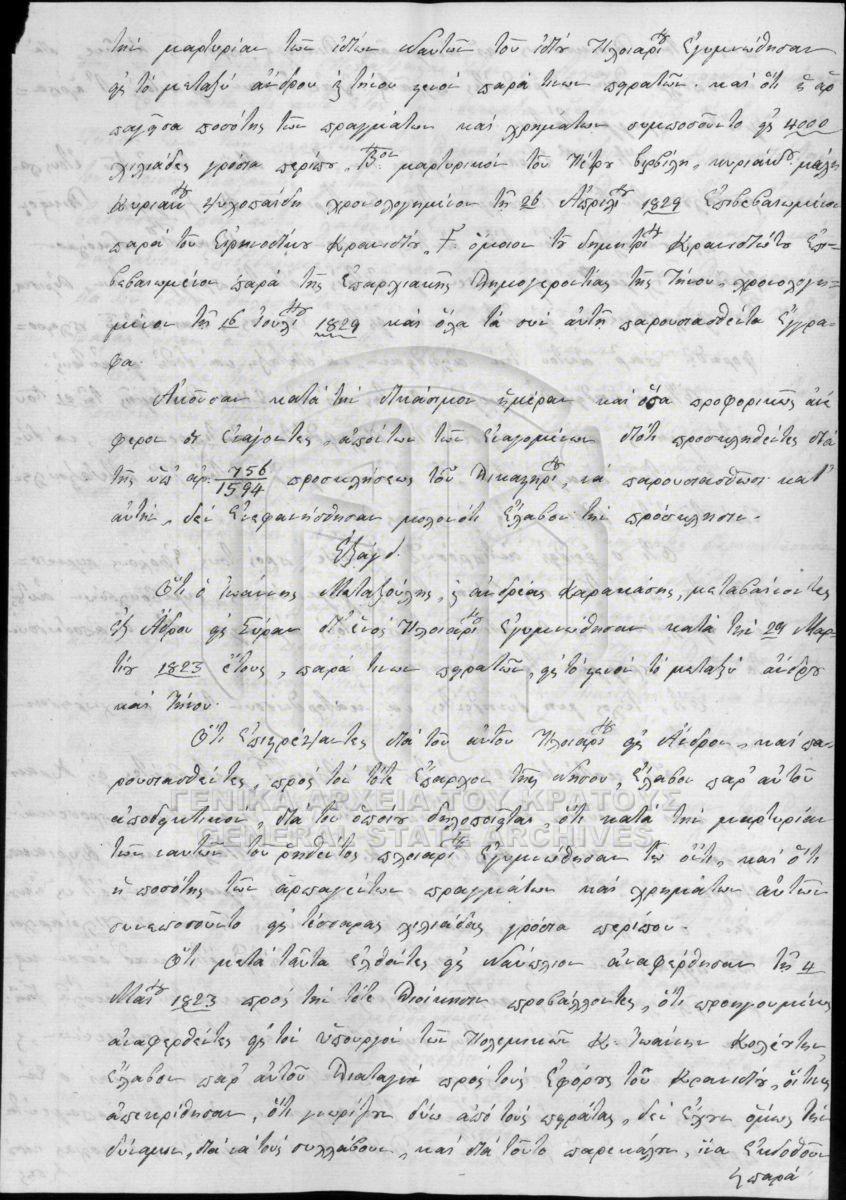 τὴν μαρτυρίαν τῶν ἰδίων ναυτῶν τοῦ ἰδίου πλοιαρίου ἐγυμνώθησαν
εἰς τὸ μεταξὺ Ἄνδρου ἢ Τήνου στενὸν παρά τινων πειρατῶν. καὶ ὅτι ἡ ἁρ
παγεῖσα ποσότης τῶν πραγμάτων καὶ χρημάτων συμποσοῦντο εἰς 4000
χιλιάδες γρόσια περίπου, Βον μαρτυρικὸν τοῦ Πέτρου
Κυριακοῦ χρονολογημένον τῇ 26 Ἀπριλίου 1829 ἐπιβεβαιωμένον
παρὰ τοῦ Εἰρηνοδίκου Κρανιδίου, Γ. ὅμοιον τοῦ Δημητρίου Κρανιδιώτου ἐπι-
βεβαιωμένον παρὰ τῆς Ἐπαρχιακῆς Δημογεροντίας τῆς Τήνου, χρονολογη-
μένον τῇ 16 Ἰουλίου 1829 καὶ ὅλα τὰ σὺν αὐτῇ παρουσιασθέντα ἔγγρα-
φα.
Ἀκοῦσαν κατὰ τὴν δικάσιμον ἡμέραν καὶ ὅσα προφορικῶς ἀνέ
φερον οἱ ἐνάγοντες, ἀπόντων τῶν ἐναγομένων διότι προσκληθέντες διὰ
τῆς ὑπ' ἀρ. 756/1594 προσκλήσεως τοῦ Δικαστηρίου, νὰ παρουσιασθῶσι κατ'
αὐτὴν, δὲν ἐνεφανίσθησαν μολονότι ἔλαβον τὴν πρόσκλησιν.
Ἐξάγει
Ὅτι ὁ Ἰωάννης Μεταξούλης, ἢ Ἀνδρέας Καρακάσης, μεταβαίνοντες
ἐξ Ἄνδρου εἰς Σύραν δι' ἑνὸς πλοιαρίου ἐγυμνώθησαν κατὰ τὴν 29 Μαρ-
τίου 1823 ἔτους, παρά τινων πειρατῶν, εἰς τὸ στενὸν τὸ μεταξὺ Ἄνδρου
καὶ Τήνου.
Ὅτι ἐπιστρέψαντες διὰ τοῦ αὐτοῦ πλοιαρίου εἰς Ἄνδρον, καὶ πα-
ρουσιασθέντες, πρὸς τὸν τότε Ἔπαρχον τῆς νήσου, ἔλαβον παρ' αὐτοῦ
ἀποδεικτικὸν, διὰ τοῦ ὁποίου δηλοποιεῖται, ὅτι κατὰ τὴν μαρτυρίαν
τῶν ναυτῶν τοῦ ῥηθέντος πλοιαρίου ἐγυμνώθησαν τῷ ὄντι, καὶ ὅτι
ἡ ποσότης τῶν ἁρπαγέντων πραγμάτων καὶ χρημάτων αὐτῶν
συνεποσοῦντο εἰς τέσσαρας χιλιάδας γρόσια περίπου.
Ὅτι μετὰ ταῦτα ἐλθόντες εἰς Ναύπλιον ἀναφέρθησαν τῇ 4
Μαΐου 1823 πρὸς τὴν τότε Διοίκησιν προβάλλοντες, ὅτι προηγουμένως
ἀναφερθέντες εἰς τὸν ὑπουργὸν τῶν Πολεμικῶν Κ. Ἰωάννην Κολέττην
ἔλαβον παρ' αὐτοῦ διαταγὴν πρὸς τοὺς Ἐφόρους τοῦ Κρανιδίου, οἵτινες
ἀπεκρίθησαν, ὅτι γνωρίζουν δύω ἀπὸ τοὺς πειράτας, δὲν ἔχουν ὅμως τὴν
δύναμιν, διὰ νὰ τοὺς συλλάβουν, καὶ διὰ τοῦτο παρεκάλουν, ἵνα ἐκδοθοῦν
παρὰ
ΓΕΝΙΚΑ ΑΡΧΕΙΑ ΤΟΥ ΚΡΑΤΟΥΣ
GENERAL STATE ARCHIVES